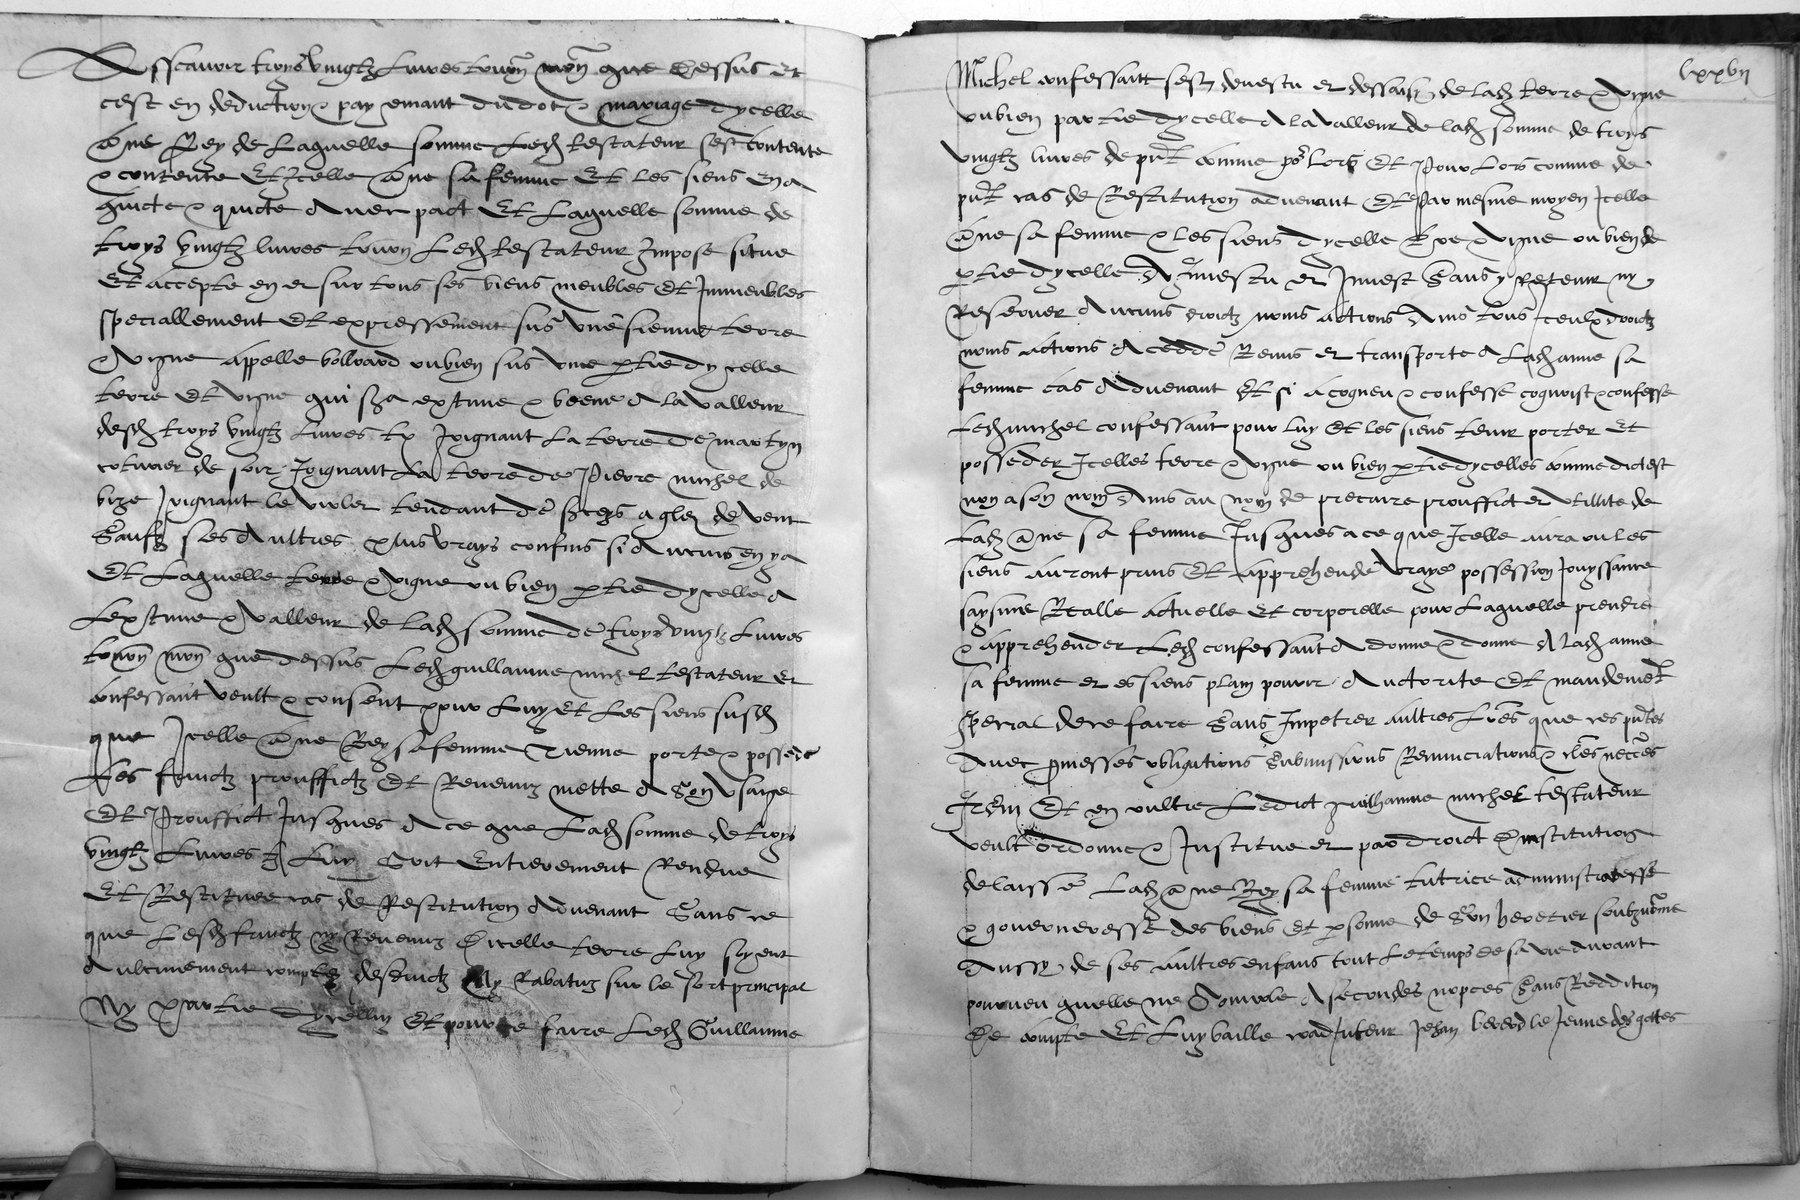 Asscavoir troys vingtz livres tourn monn que dessus et
cest en deduction & payemant du dot & mariage dycelle
anne Rey de laquelle somme led testateur sest contente
& contente et icelle anne sa femme et les siens en a
quicte & quicte avec pact et laquelle somme de
troys vingtz livres tourn led testateur impose situe
et accepte en et sur tous ses biens meubles et immeubles
speciallement et expressement sus une sienne terre
& vigne appelle bollvard ou bien sus une ptie dycelle
terre et vigne qui sera extime & veene a la valleur
desd troys vingtz livres tz joignant la terre de martyn
de soir joignant la terre de pierre michel de
bize joignant le violer tendant de a gley de vent
saufz ses aultres plus vrays confins si aucuns en y a
et laquelle terre & vigne ou bien ptie dycelle a
lextime & valleur de lad somme de troys vingtz livres
tourn monn que dessus led guillaume michel testateur et
confessant veult & consent pour luy et les siens susd
que icelle anne Rey sa femme tienne porte & possede
les fruictz prouffictz et revenuz mette a son usaige
et prouffict jusques a ce que lad somme de troys
vingtz livres tz luy soit entierement rendue
et restituee cas de restitution advenant sans ce
que lesd fruictz ny revenuz dicelle terre luy soyent
aulcunement comptez desduictz ny rabatuz sur le sort principal
ny partie dycelluy et pour ce faire led Guillaume
lxxvii
Michel confessant sest devestu et dessaisy de lad terre & vigne
ou bien partie dycelle a la valleur de lad somme de troys
vingtz livres de pnt comme pr lors et pour lors comme de
pnt cas de restitution advenant et par mesme moyen icelle
anne sa femme & les siens dycelle tere & vigne ou bien de
ptie dycelle a investu et invest sans y retenir ny
reserver aucuns droictz noms actions ains tous iceulx droictz
noms actions a cedde remis et transporte a lad anne sa
femme cas advenant et si a cogneu & confesse cognoist & confesse
led michel confessant pour luy et les siens tenir porter et
posseder icelles terre & vigne ou bien ptie dycelles comme dict est
non a son nom ains au nom de precaire prouffict et utillite de
lad anne sa femme jusques a ce que icelle aura ou les
siens auront prins et apprehende vraye possession jouyssance
saysine realle actuelle et corporelle pour laquelle prendre
& apprehender led confessant a donne & donne a lad anne
sa femme et es siens plain povoir auctorite et mandement
special de ce faire sans impetrer aultres lres que ces pntes
avec pmesses obligations submissions renunciations & cles neccres
Item et en oultre ledict guilhaume michel testateur
veult ordonne & institue et par droict dinstitution
delaisse lad anne Rey sa femme tutrice administraresse
& gouverneresse des biens et psonne de son heretier soubznome
aussy de ses aultres enfans tout le temps de sa vie durant
pourveu quelle ne convole a secondes nopces sans reddition
de compte et luy baille coadjuteur jehan le jeune des gettes